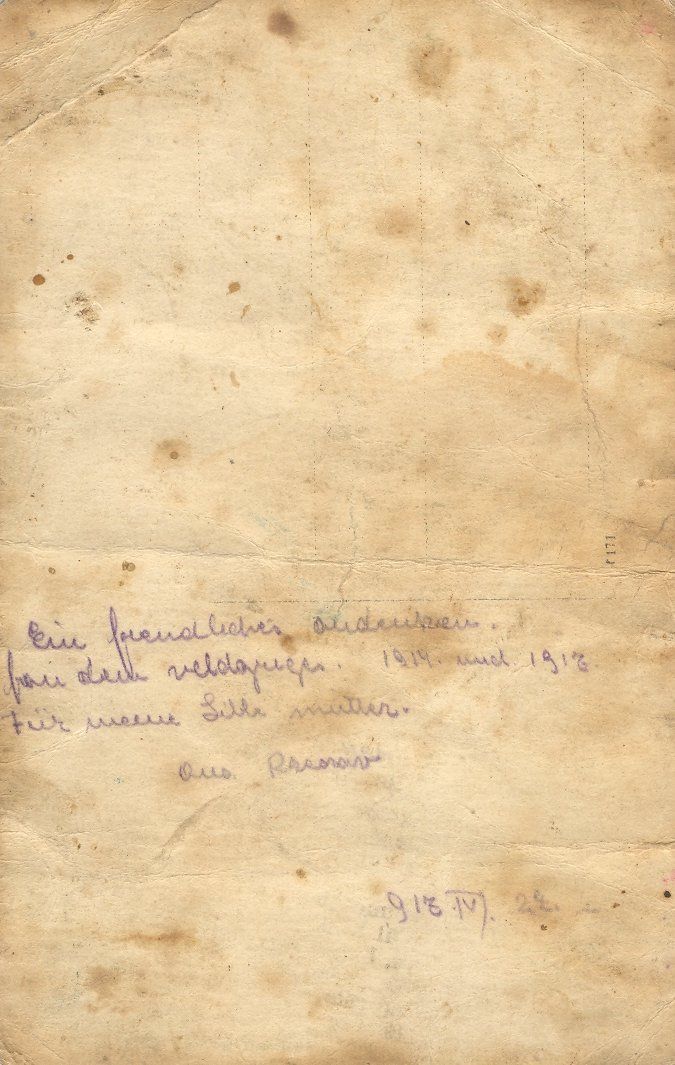 Ein freundliches andenken.
fon dem veldzuge. 1914. und. 1917
Für meine Libe mutter.
917 IV). 22.
F 171